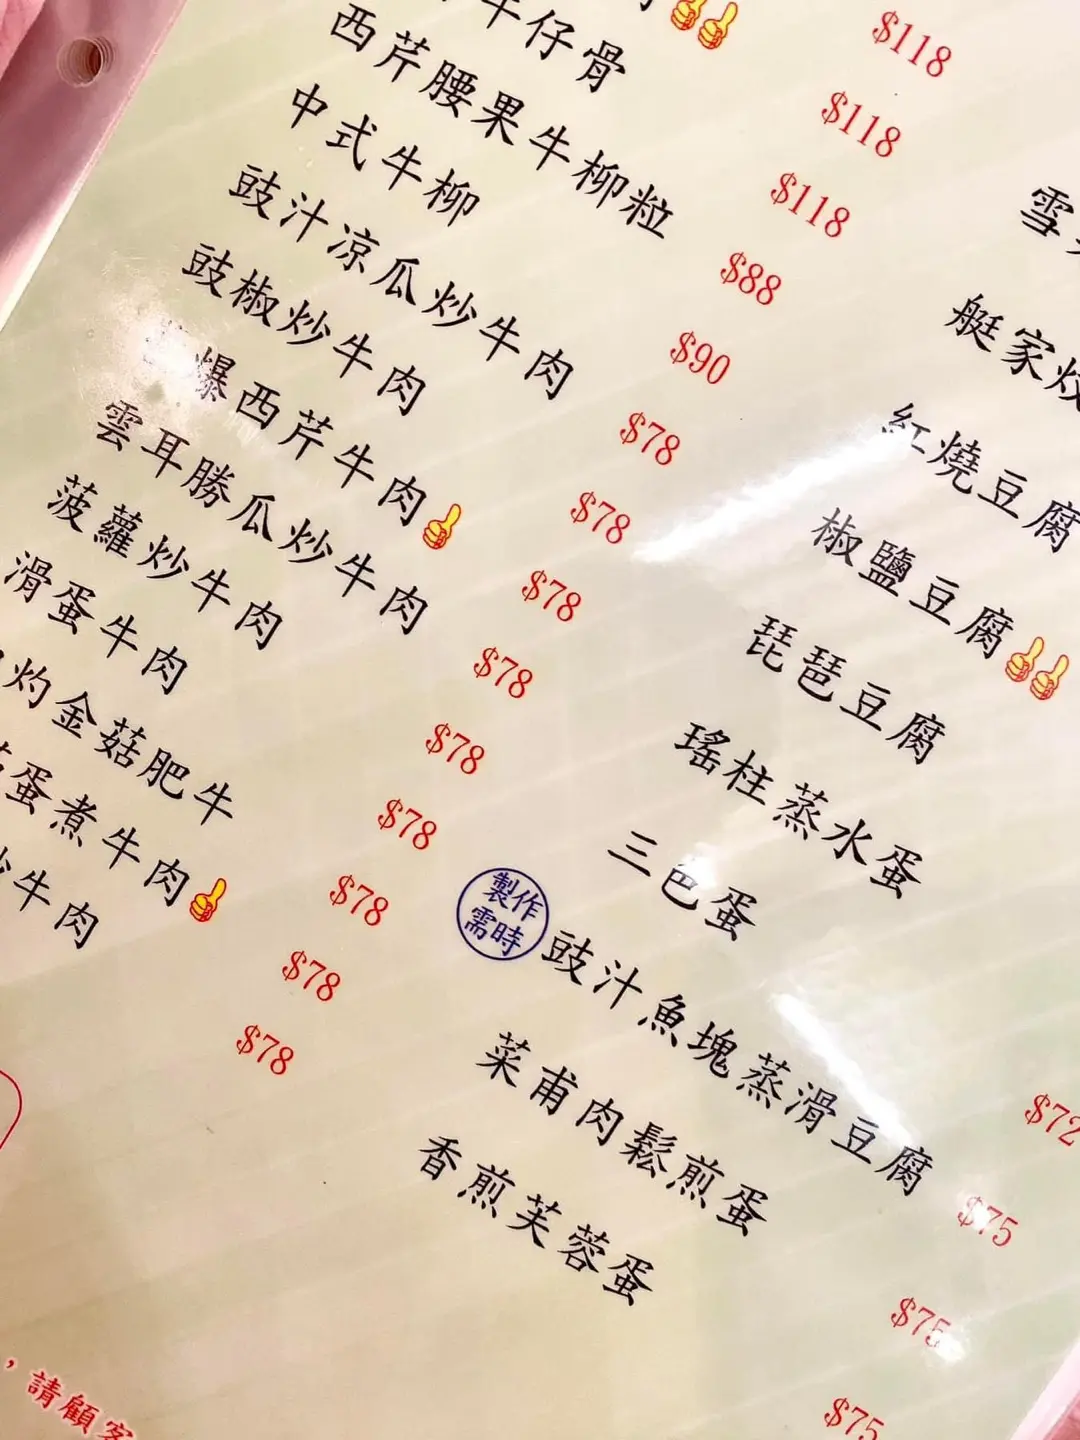 $118
牛仔骨
$118
西芹腰果牛柳粒
$118
中式牛柳
$88
豉汁凉瓜炒牛肉
$90
豉椒炒牛肉
$78
爆西芹牛肉
$78
雲耳勝瓜炒牛肉
$78
菠蘿炒牛肉
$78
滑蛋牛肉
$78
灼金菇肥牛
$78
蛋煮牛肉
$78
牛肉
$78
$78
雪
艇家炆
紅燒豆腐
椒鹽豆腐
琵琶豆腐
瑤柱蒸水蛋
三色蛋
製作需時
豉汁魚塊蒸滑豆腐
$72
菜甫肉鬆煎蛋
$75
香煎芙蓉蛋
$75
$75
，請顧客